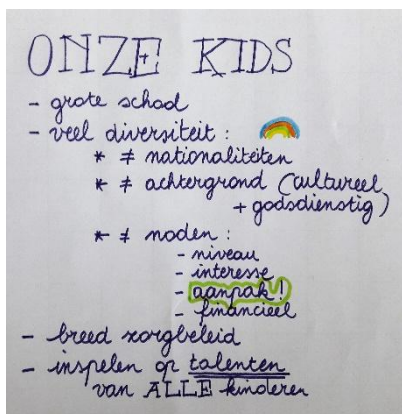 ONZE KIDS
- grote school
- veel diversiteit :
* ≠ nationaliteiten
* ≠ achtergrond (cultureel
+ godsdienstig)
* ≠ noden :
- niveau
- interesse
- aanpak!
- financieel
- breed zorgbeleid
- inspelen op talenten
van ALLE kinderen